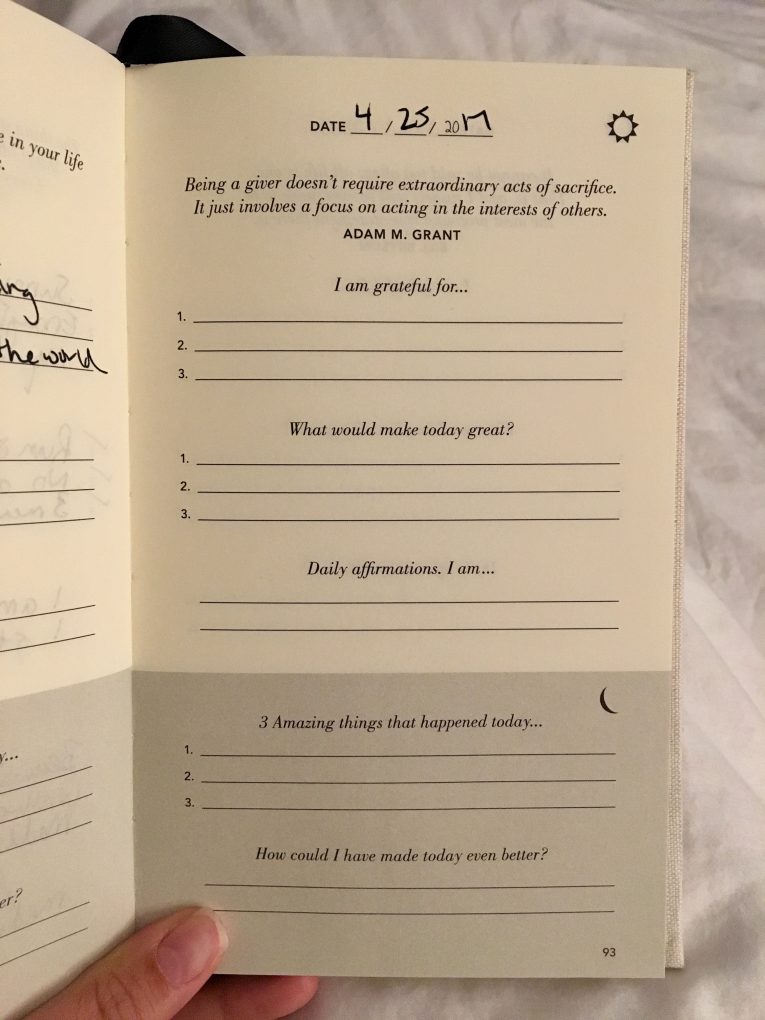 e in your life
e.
ing
the world
y...
er?
DATE 4 / 25 / 2017
Being a giver doesn't require extraordinary acts of sacrifice.
It just involves a focus on acting in the interests of others.
ADAM M. GRANT
I am grateful for...
1.
2.
3.
What would make today great?
1.
2.
3.
Daily affirmations. I am...
3 Amazing things that happened today...
1.
2.
3.
How could I have made today even better?
93